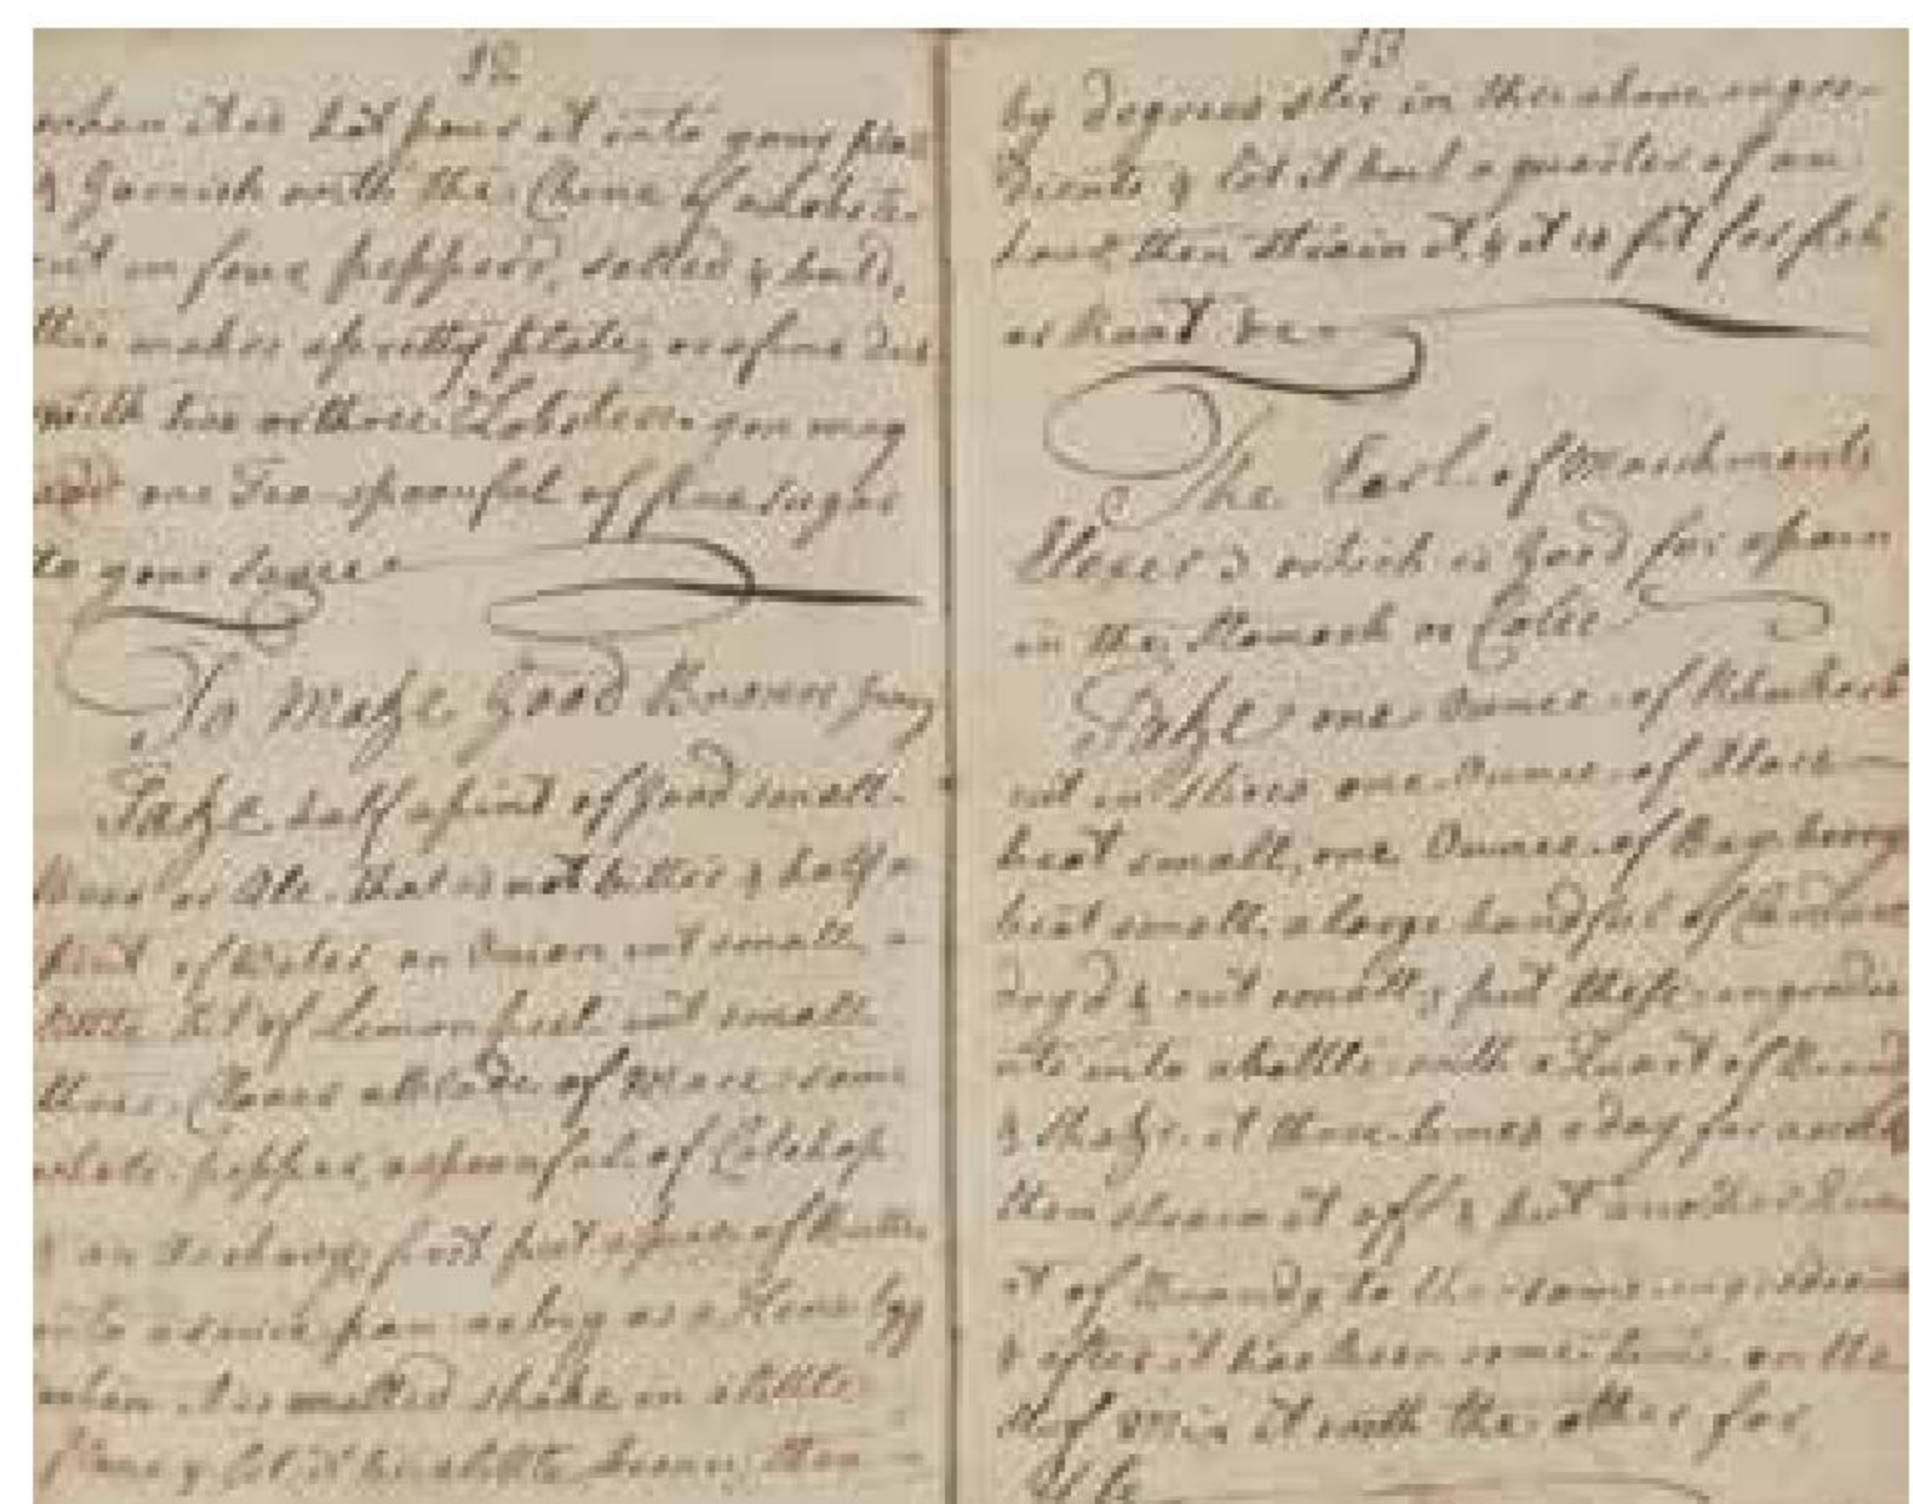 12
when it is hot pour it into your plate
& Garnish with the Chine of a Lobster
cut in four pepper'd, salted & broil'd,
this makes a pretty plate, or a fine dish
with two or three Lobsters. you may
add one Tea-spoonful of fine sugar
to your sauce
To Make Good Brown Gravy
Take half a pint of Good small-
Beer or Ale. that is not bitter & half a
pint of Water, an Onion cut small, a
little bit of Lemon peel. cut small
three Cloves a blade of Mace some
whole pepper, a spoonful of Catchup
& an Anchovy, first put a piece of Butter
into a sauce pan as big as a Hens Egg
when it is melted shake in a little
flour & let it be a little brown, then
13
by degrees stir in the above ingre-
dients & let it boil a quarter of an
hour, then strain it, & it is fit for fish
or Roast &c
The Earl of Marchmonts
Elexer which is Good for a pain
in the Stomach or Colic
Take one Ounce of Rhubarb
cut in Slices one Ounce of
beat small, one Ounce of Bay berrys
beat small. a large handful of
dry'd & cut small, put these ingredie
nts into a bottle with a Quart of Brandy
& shake it three times a day for a week
then strain it off & put another
of Brandy to the same ingredients
& after it has been some time on the
Mix it with the other for
Use